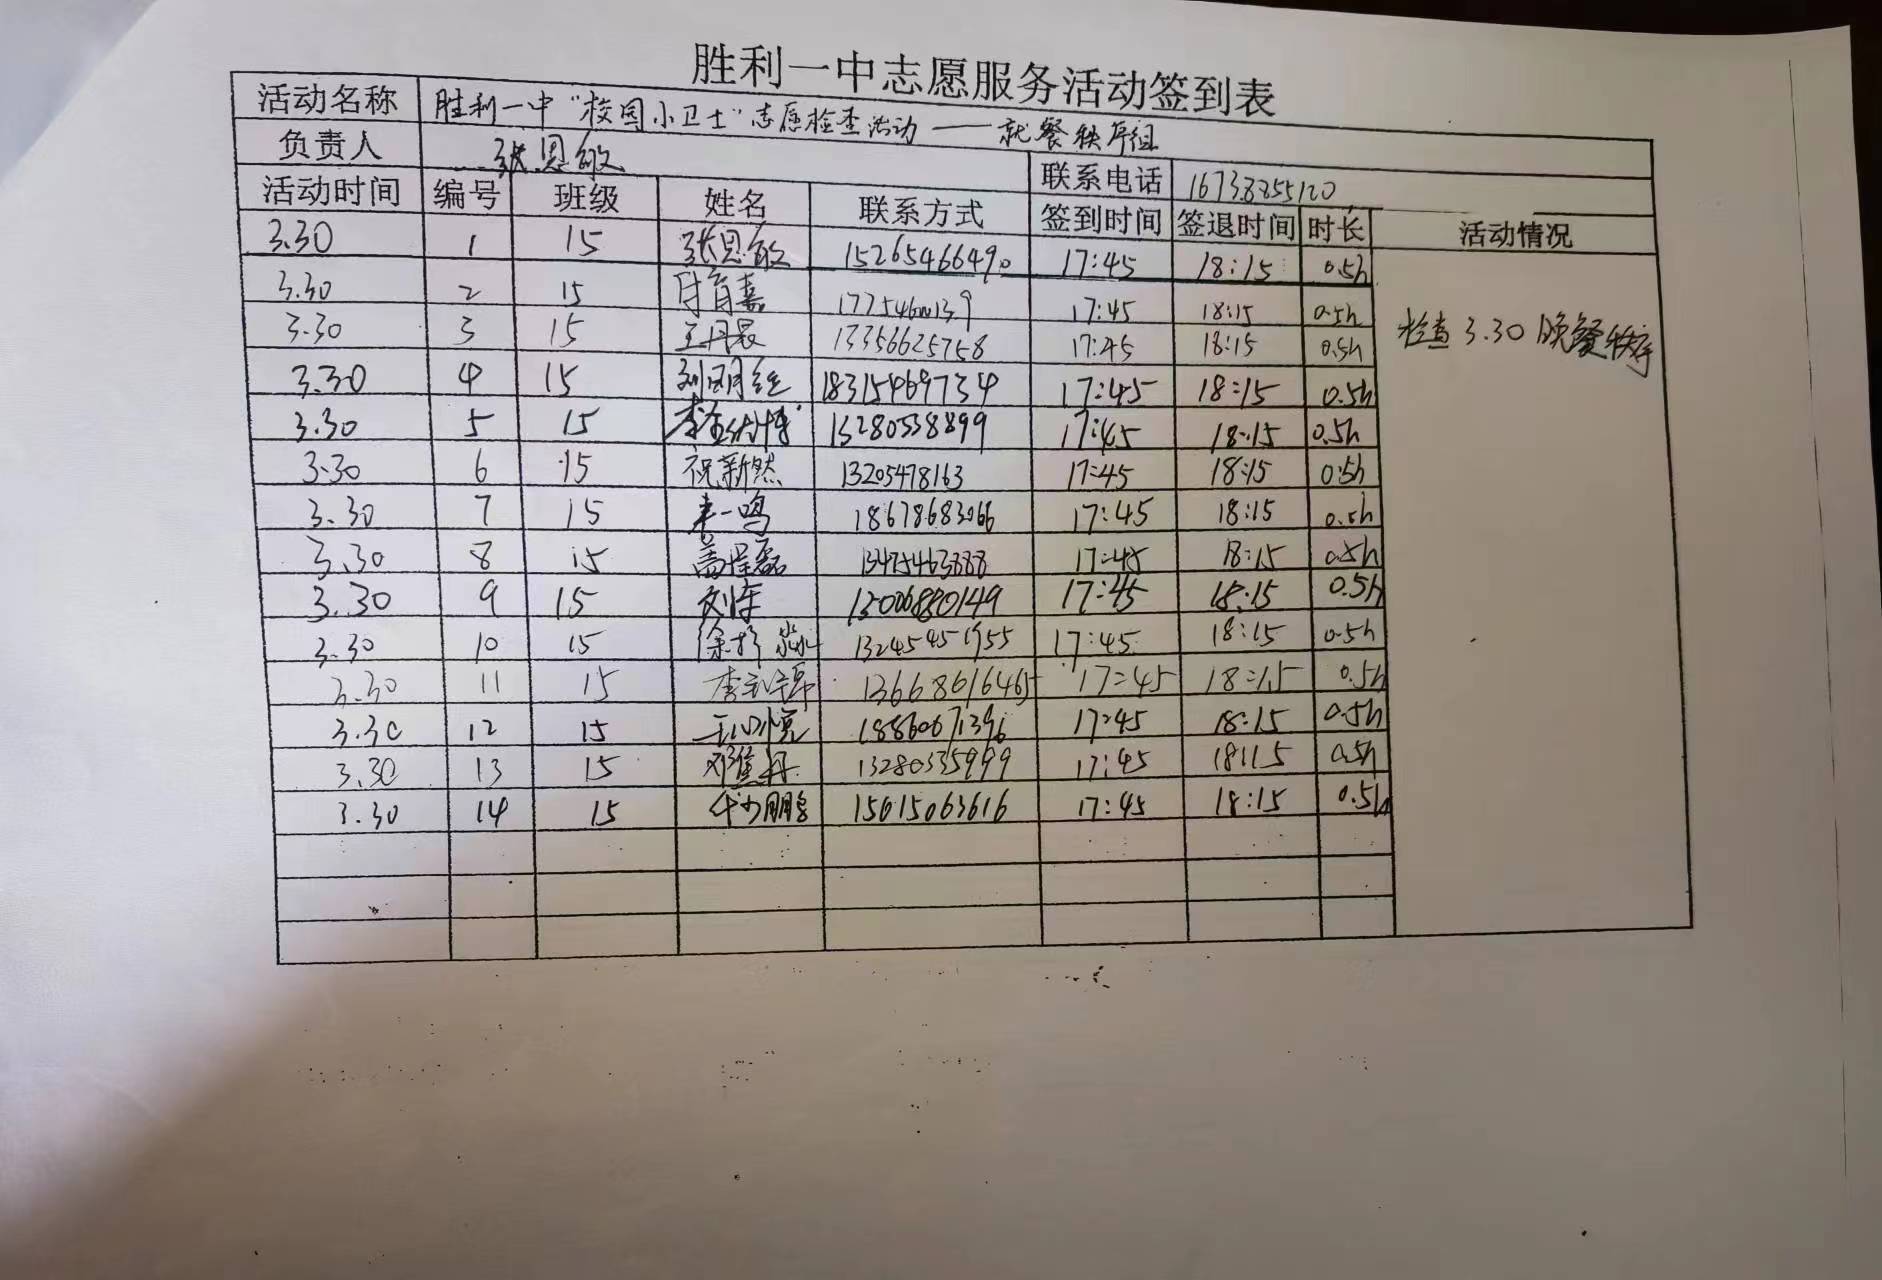 胜利一中志愿服务活动签到表
活动名称 胜利一中“校园小卫士”志愿检查活动——就餐秩序组
负责人 张恩敏 联系电话 16738255120
活动时间 编号 班级 姓名 联系方式 签到时间 签退时间 时长 活动情况
3.30 1 15 张恩敏 15265466490 17:45 18:15 0.5h
3.30 2 15 17:45 18:15 0.5h
3.30 3 15 13356625758 17:45 18:15 0.5h 检查3.30晚餐秩序
3.30 4 15 18315469734 17:45 18:15 0.5h
3.30 5 15 13280538899 17:45 18:15 0.5h
3.30 6 15 祝新然 13205478163 17:45 18:15 0.5h
3.30 7 15 18678683066 17:45 18:15 0.5h
3.30 8 15 13475463888 17:45 18:15 0.5h
3.30 9 15 15006880149 17:45 18:15 0.5h
3.30 10 15 13245451955 17:45 18:15 0.5h
3.30 11 15 13668616465 17:45 18:15 0.5h
3.30 12 15 王心悦 18860671396 17:45 18:15 0.5h
3.30 13 15 13280335999 17:45 18:15 0.5h
3.30 14 15 15615063616 17:45 18:15 0.5h